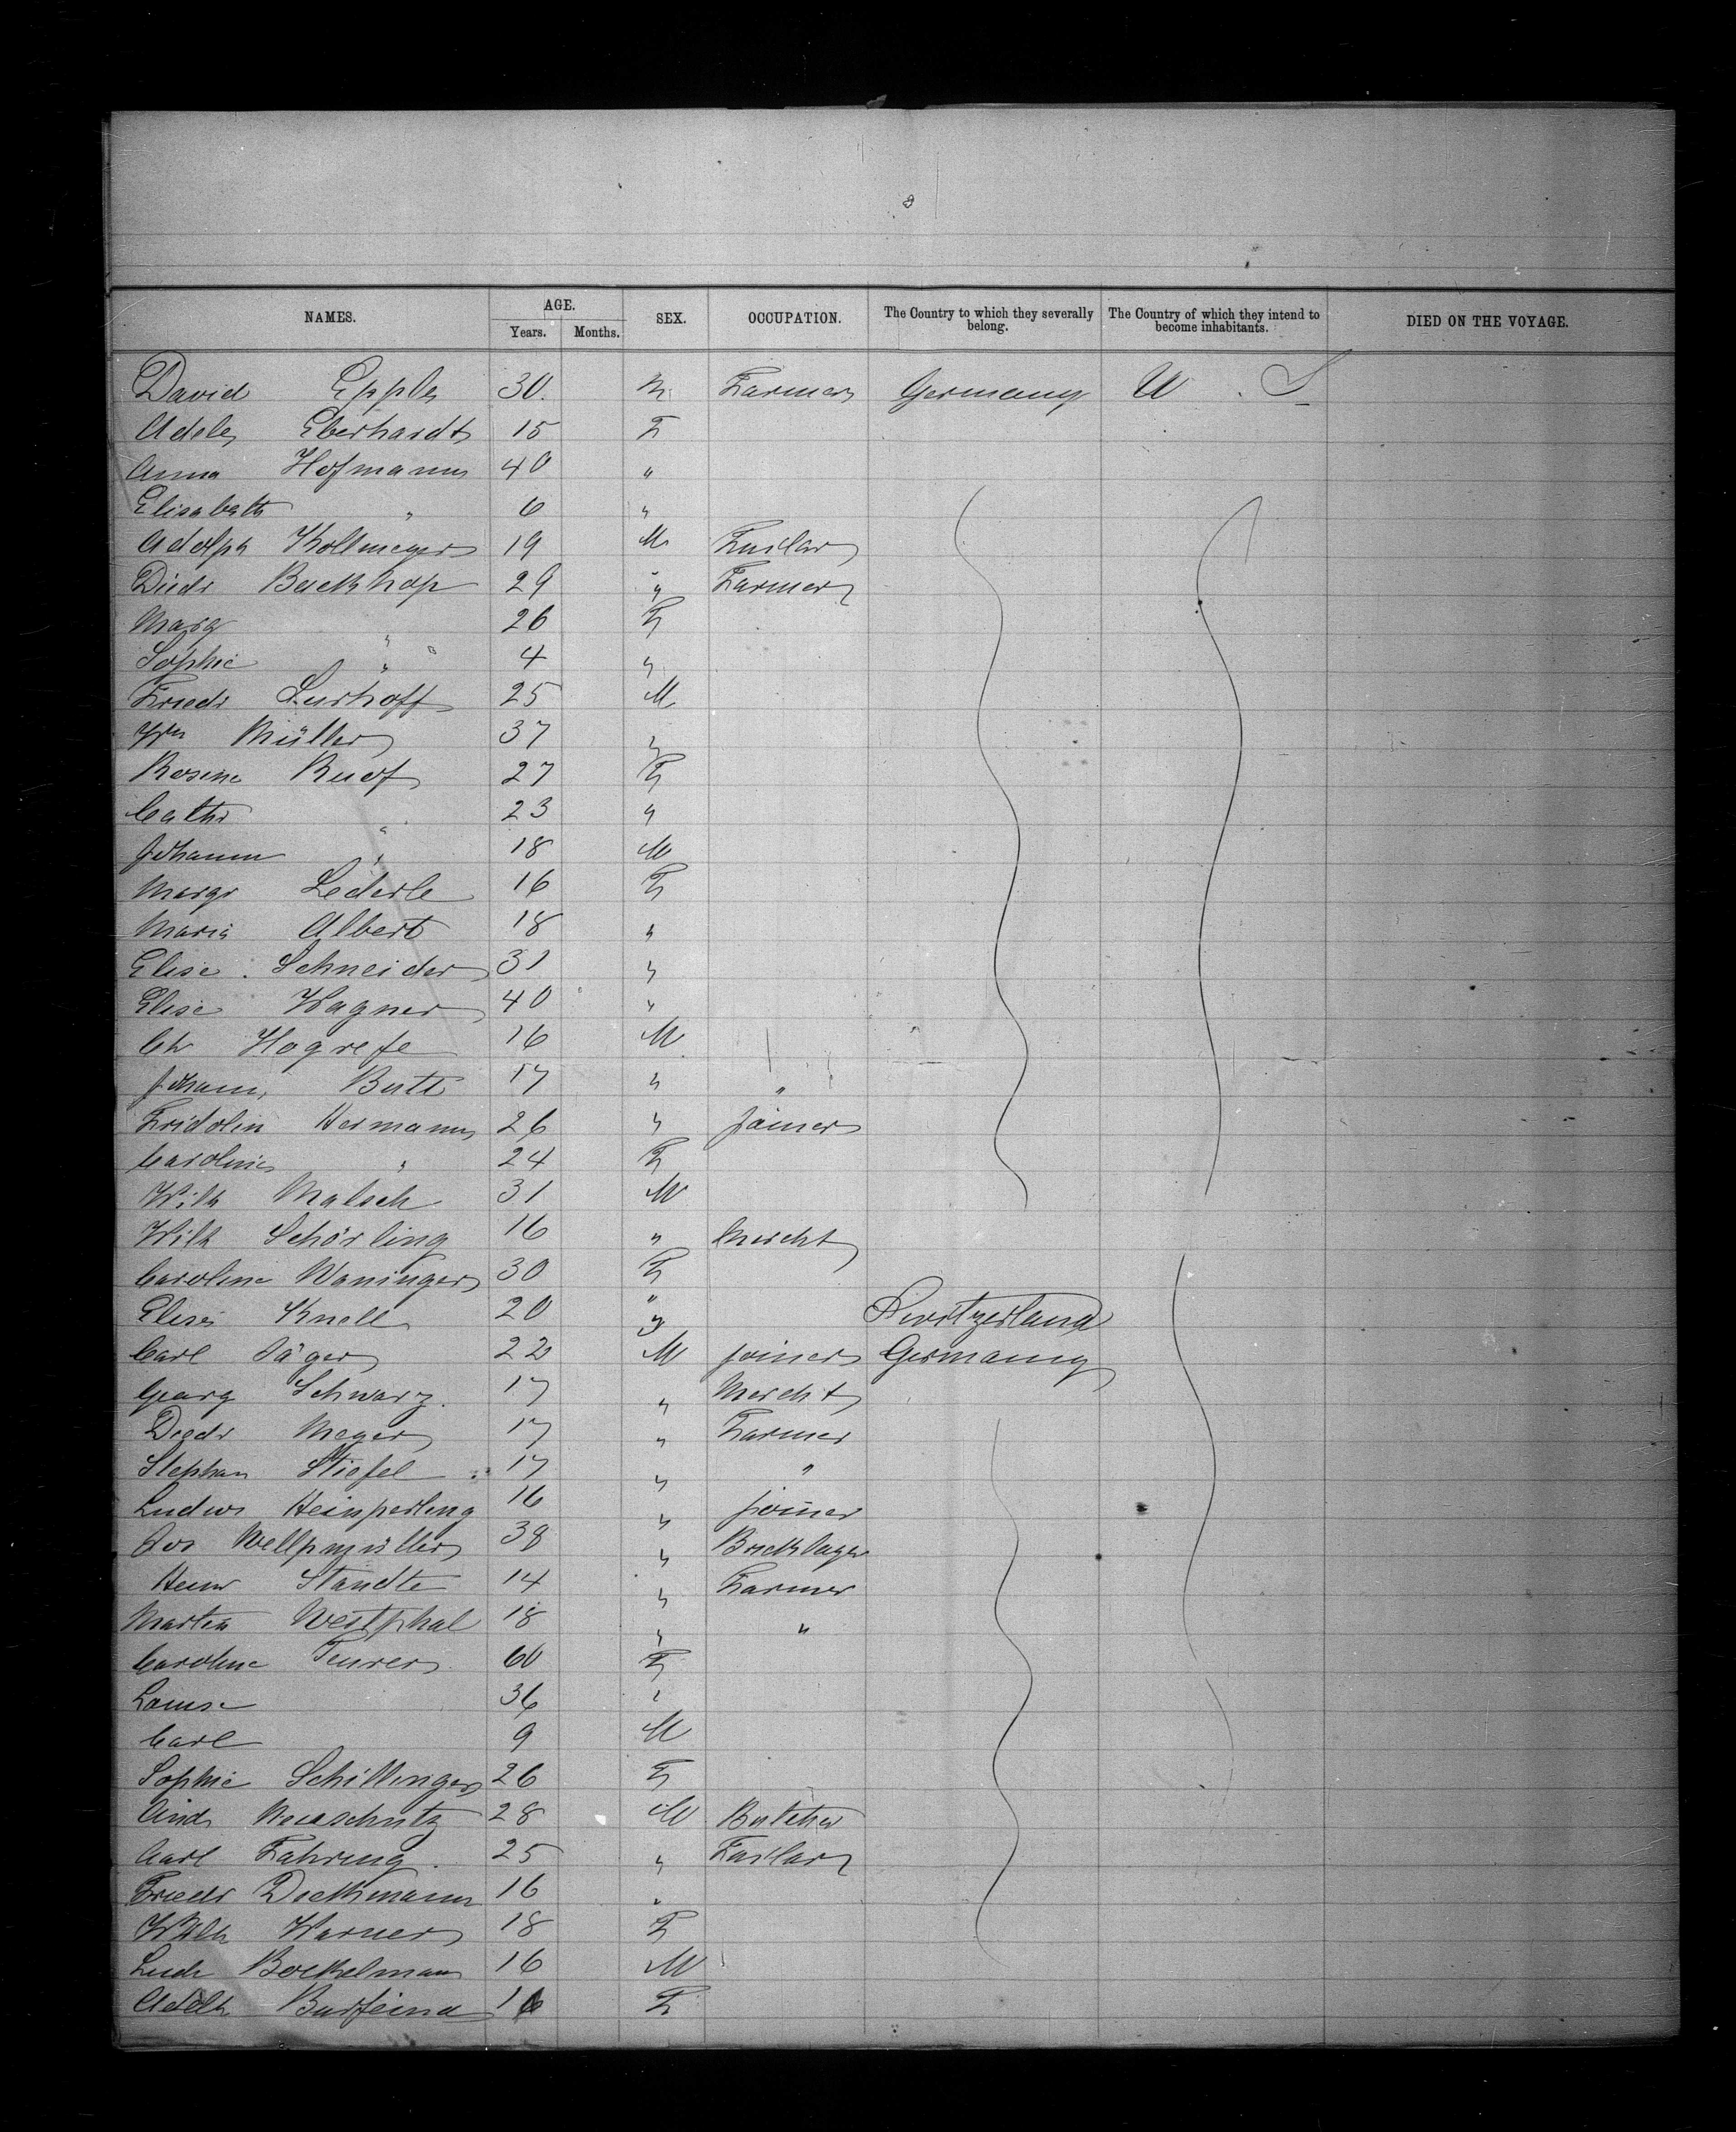 8
NAMES. AGE. SEX. OCCUPATION. The Country to which they severally belong. The Country of which they intend to become inhabitants. DIED ON THE VOYAGE.
Years. Months.
David Epple 30. M Farmer Germany U. S
Adele Eberhardt 15 F
Anna Hofmann 40 "
Elisabeth " 6 "
Adolph Kollmeyer 19 M Tailor
Diedr Backhop 29 " Farmer
Marg " 26 F
Sophie " 4 "
Friedr Lurhoff 25 M
Wm Müller 37 "
Rosine Ruof 27 F
Cathr " 23 "
Johann " 18 M
Margr Lederle 16 F
Maria Albert 18 "
Elise Schneider 31 "
Elise Wagner 40 "
Chr Hogrefe 16 M
Johann Butt 17 " "
Fridolin Hermann 26 " joiner
Caroline " 24 F
Wilh Malsch 31 M
Wilh Schörling 16 " Mercht
Caroline Waninger 30 F
Elise Knell 20 " Switzerland
Carl Jäger 22 M joiner Germany
Georg Schwarz 17 " Mercht
Diedr Meyer 17 " Farmer
Stephan Stiefel 17 " "
Ludw Heinperling 16 " joiner
Jos Wellpmüller 38 " Bricklayer
Heinr Standte 14 " Farmer
Martin Westphal 18 " "
Caroline Feurer 60 F
Louise 36 "
Carl 9 M
Sophie Schillinger 26 F
Andr 28 M Butcher
Carl Fahring 25 " Tailor
Friedr Dockmann 16 "
Wilh Warner 18 F
Ludr Bockelmann 16 M
Adelh Burfeind 16 F